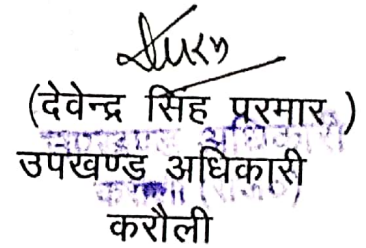 (देवेन्द्र सिंह परमार )
उपखण्ड अधिकारी
करौली